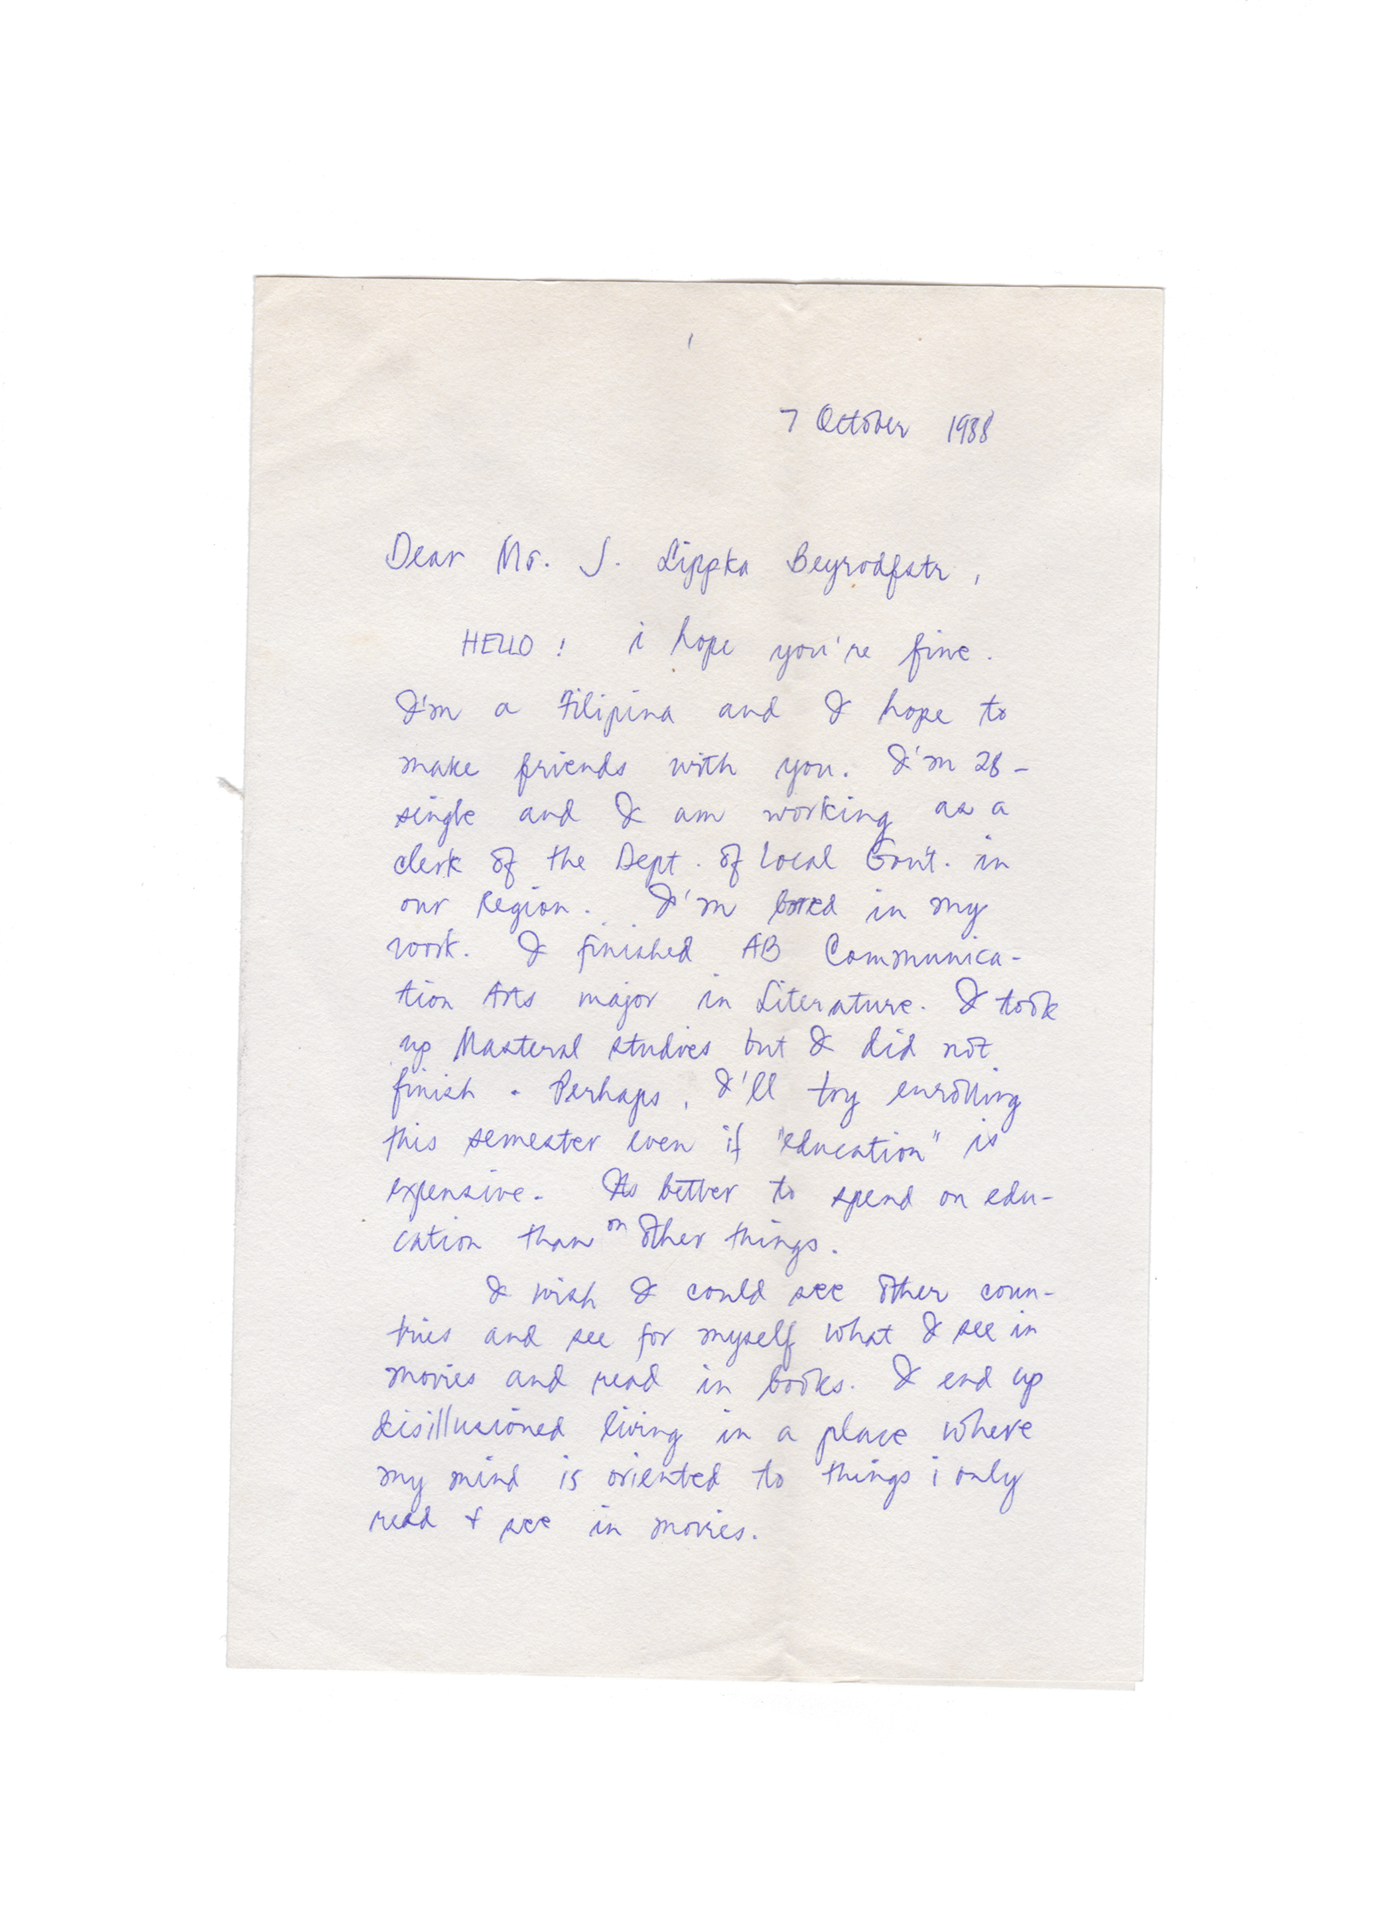 7 October 1988
Dear Mr. J. Lippka Beyrodfstr,
HELLO! i hope you're fine.
I'm a Filipina and I hope to
make friends with you. I'm 28 -
single and I am working as a
clerk of the Dept. of Local Gov't. in
our Region. I'm bored in my
work. I finished AB Communica-
tion Arts major in Literature. I took
up Masteral studies but I did not
finish. Perhaps, I'll try enrolling
this semester even if "education" is
expensive. Its better to spend on edu-
cation than on other things.
I wish I could see other coun-
tries and see for myself what I see in
movies and read in books. I end up
disillusioned living in a place where
my mind is oriented to things i only
read & see in movies.